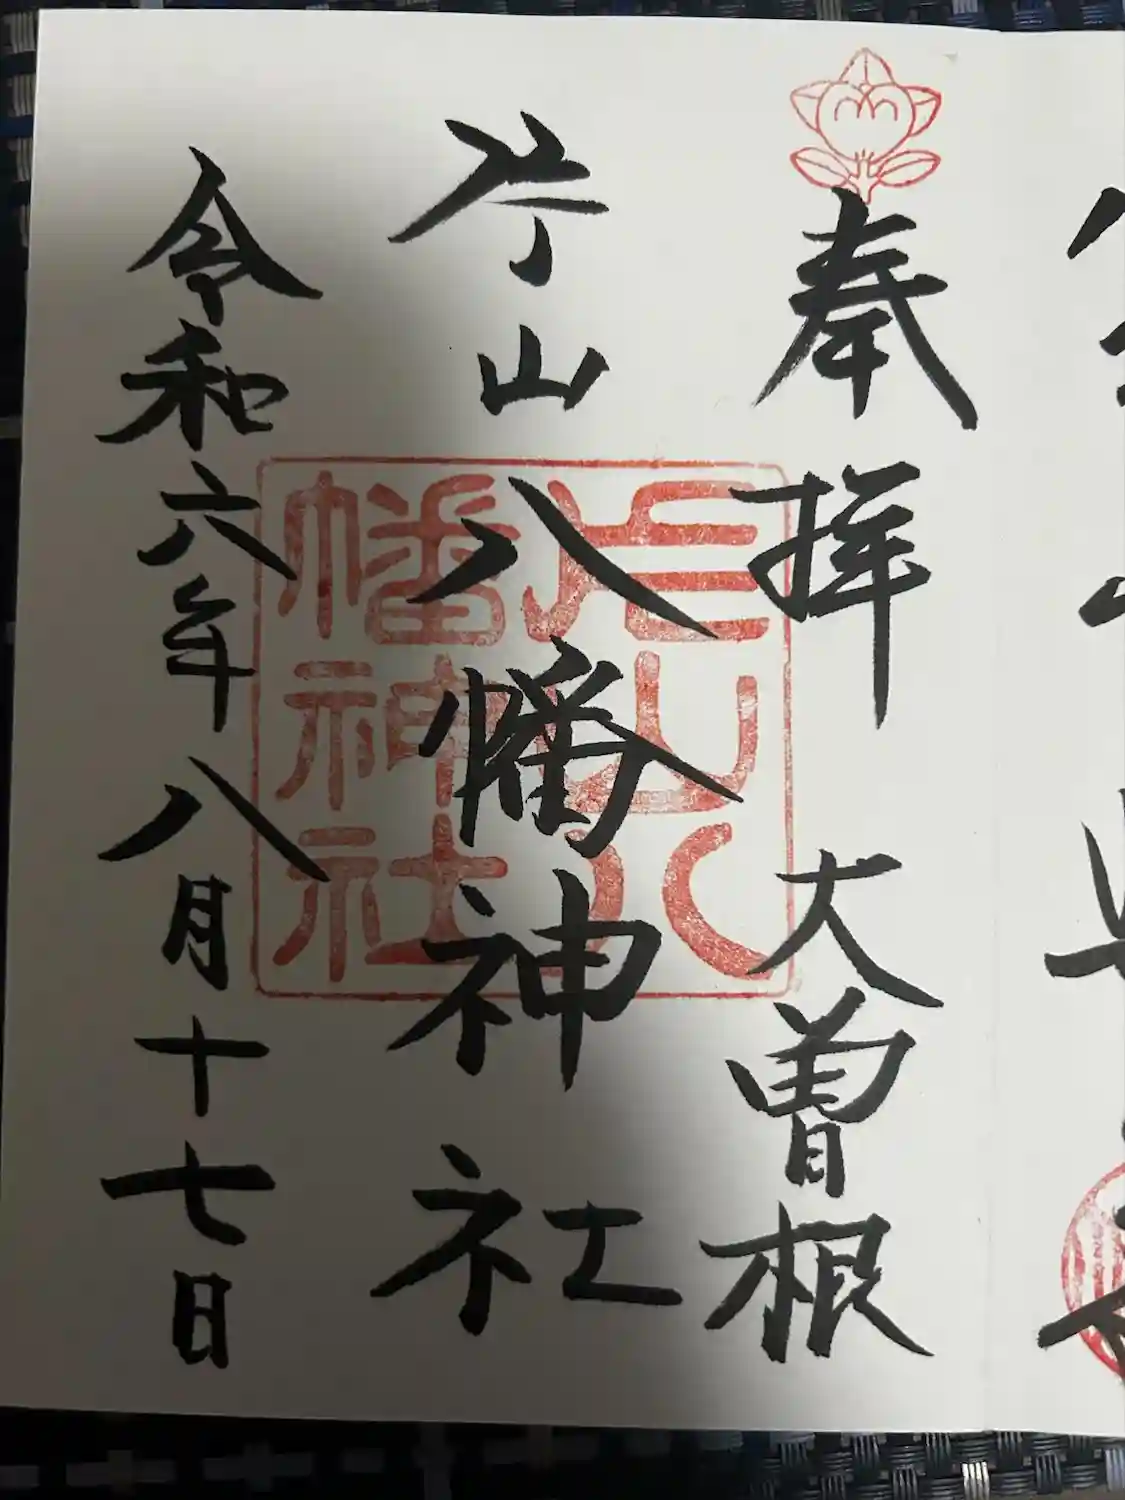 奉拝 大曽根
片山八幡神社
令和六年八月十七日
片山八
幡神社